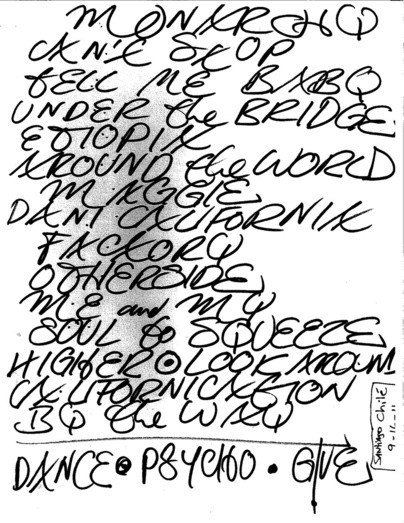 MONARCHY
CAN'T STOP
TELL ME BABY
UNDER the BRIDGE
ETIOPIA
AROUND the WORLD
MAGGIE
DANI CALIFORNIA
FACTORY
OTHERSIDE
ME and MY
SOUL to SQUEEZE
HIGHER • LOOK AROUND
CALIFORNICATION
BY the WAY
DANCE • PSYCHO • GIVE
Santiago Chile